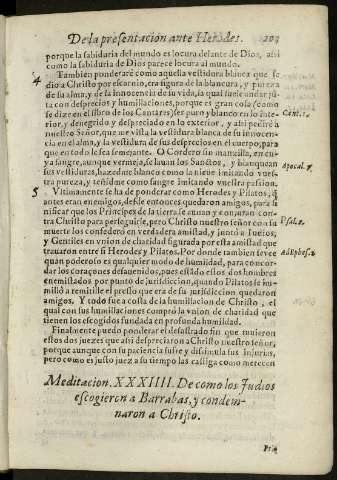 De la presentacion ante Herodes. 203
porque la sabiduria del mundo es locura delante de Dios, assi
como la sabiduria de Dios parece locura al mundo.
4 Tambien ponderarè como aquella vestidura blanca que se
dio a Christo por escarnio, era figura de la blancura, y pureza
de su alma, y de la inocencia de su vida, la qual suele andar jũ
ta con desprecios y humillaciones, porque es gran cosa (como
se dize en el libro de los Cantares) ser puro y blanco en lo inte- Cant. 1.
rior, y denegrido y despreciado en lo exterior, y assi pedirè a
nuestro Señor, que me vista la vestidura blanca de su innocen-
cia en el alma, y la vestidura de sus desprecios en el cuerpo, para
que en todo le sea semejante. O Cordero sin manzilla, en cu-
ya sangre, aunque vermeja, se lauan los Sanctos, y blanquean Apocal. 7.
sus vestiduras, hazedme blanco como la nieue imitando vues-
tra pureza, y teñidme como sangre imitando vuestra passion.
5 Vltimamente se ha de ponderar como Herodes y Pilatos, q̃
antes eran enemigos, desde entonces quedaron amigos, para si
nificar que los Principes de la tierra se aunan y conjuran con-
tra Christo para perseguirle, pero Christo nuestro señor con su Psal. 2.
muerte los confederò en verdadera amistad, y juntò a Iudios,
y Gentiles en vnion de charidad figurada por esta amistad que
trauaron entre si Herodes y Pilatos. Por donde tambien se vee Ad Ephes. 2.
quan poderoso es qualquier modo de humildad, para concor-
dar los coraçones desauenidos, pues estãdo estos dos hombres
enemistados por punto de jurisdiccion, quando Pilatos se hu-
millò a remitille el presso que era de su jurisdiccion quedaron
amigos. Y todo fue a costa de la humillacion de Christo, el
qual con sus humillaciones comprò la vnion de charidad que
tienen los escogidos fundada en profunda humildad.
Finalmente puedo ponderar el desastrado fin que tuuieron
estos dos juezes que assi despreciaron a Christo nuestro señor,
porque aunque con su paciencia sufre y dissimula sus injurias,
pero como es justo juez a su tiempo las castiga como merecen
Meditacion. XXXIIII. De como los Judios
escogieron a Barrabas, y condem-
naron a Christo.